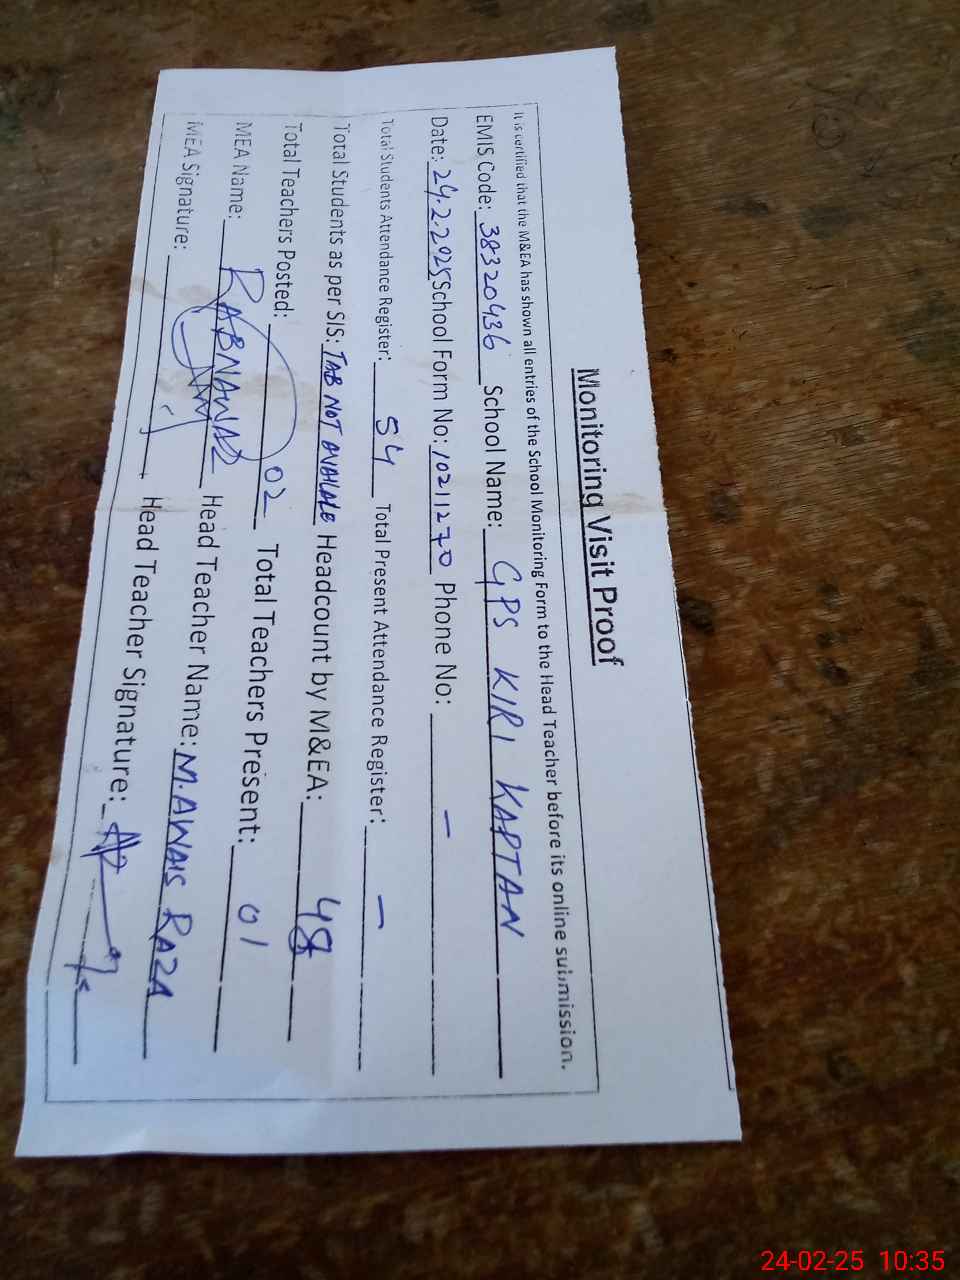 Monitoring Visit Proof
It is certified that the M&EA has shown all entries of the School Monitoring Form to the Head Teacher before its online submission.
EMIS Code: 38320436 School Name: GPS KIRI KAPTAN
Date: 24.2.2025 School Form No: 10211270 Phone No: –
Total Students Attendance Register: 54 Total Present Attendance Register: –
Total Students as per SIS: TAB NOT AVAILABLE Headcount by M&EA: 48
Total Teachers Posted: 02 Total Teachers Present: 01
MEA Name: RABNAWAZ Head Teacher Name: M.AWAIS RAZA
MEA Signature: Head Teacher Signature:
24-02-25 10:35